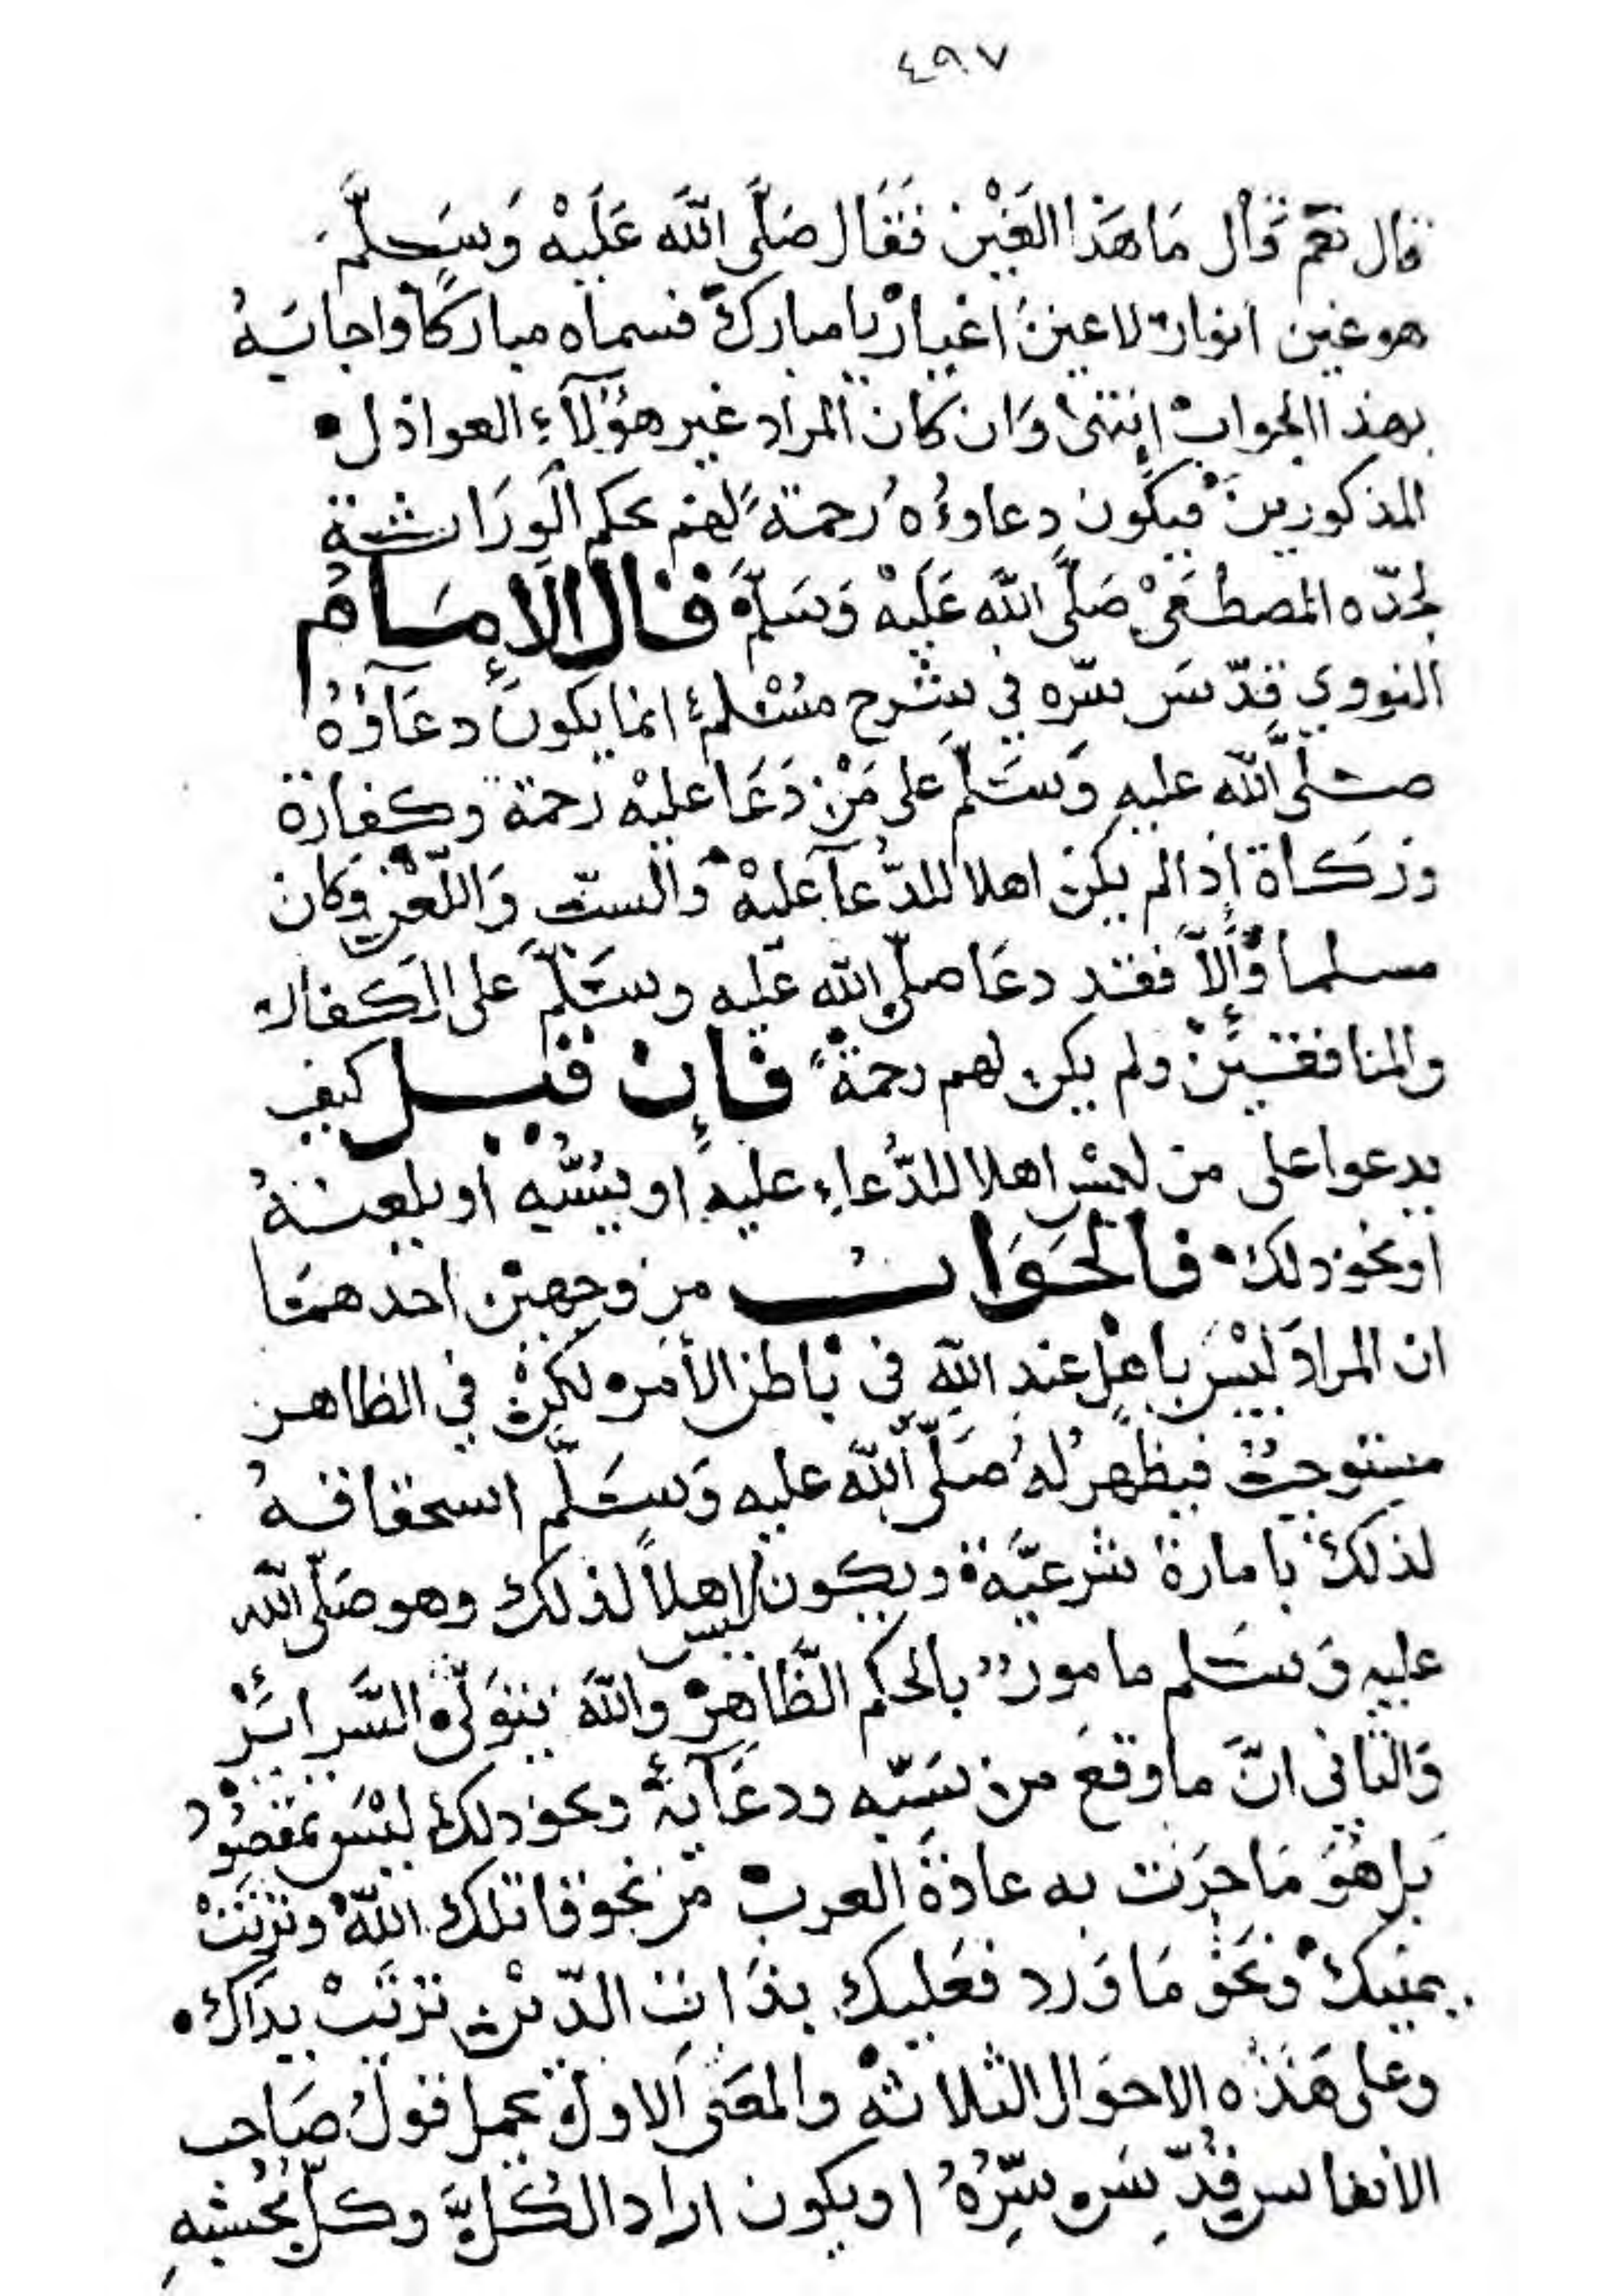 ٤٩٧
قال نعم قال ما هذا الغين فقال صَلَّى اللهَ عَلَيْهْ وَسَلَّمَ
هو غين انوار لا عين اغيار يا مبارك فسماه مباركا واجابه
بهذا الجواب انتهى وَان كان المراد غير هؤلآء العواذل
المذكورين فيكون دعاوُه رحمة لهم بحكم الورَاثة
لجدّه المصطفى صَلَّى اللهَ عَلَيْهْ وَسَلَّم فقال الإمَامُ
النووي قدّسَ سرّه في شرح مسْلم انما يكون دعَآؤهُ
صلى الله عليه وَسَلّم على مَنْ دَعَا عليْه رحمة وكفارة
وزكاة اذا لم يكن اهلا للدُّعآ عليْه وَالسبّ وَاللّعْن وكان
مسلما وَإلاّ فقد دعَا صلّى الله عليه وسَلّم على الكفار
والمنافقين ولم يكن لهم رحمةً فإن قيل كيف
يدعوا على من ليس اهلا للدُّعاء عليه او يسُبّه او يلعنهُ
او نحو ذلك فالجَوَاب من وجهين احدهمَا
ان المرادَ ليْسَ باهل عند الله في باطن الأمر ولكن في الظاهر
مستوجب فيظهر له صَلّى الله عليه وَسَلّم استحقاقه
لذلك بامارة شرعيَّة ويكون ليس اهلاً لذلك وهو صَلّى الله
عليه وَسَلم مامور بالحكم الظَّاهِرْ واللهَ يتوَلّى السَّرائرْ
وَالثاني انَّ ما وقعَ من سَبّه ودعَآئه ونحو ذلك ليْسَ بمقصُود
بل هُوَ مَا جرَت به عادَة العرب من نحو قاتلك اللّهْ وتربَتْ
يمينك ونحْو مَا وَرد فعَليك بذَات الدّين تربَتْ يدَاك
وعلى هَذه الاحوَال الثلاثه والمعَنى الاول يحمل قولُ صَاحب
الانفاس قدّسَ سِرُّهُ او يكون اراد الكُلَّ وكلّ بحُسْبِهِ